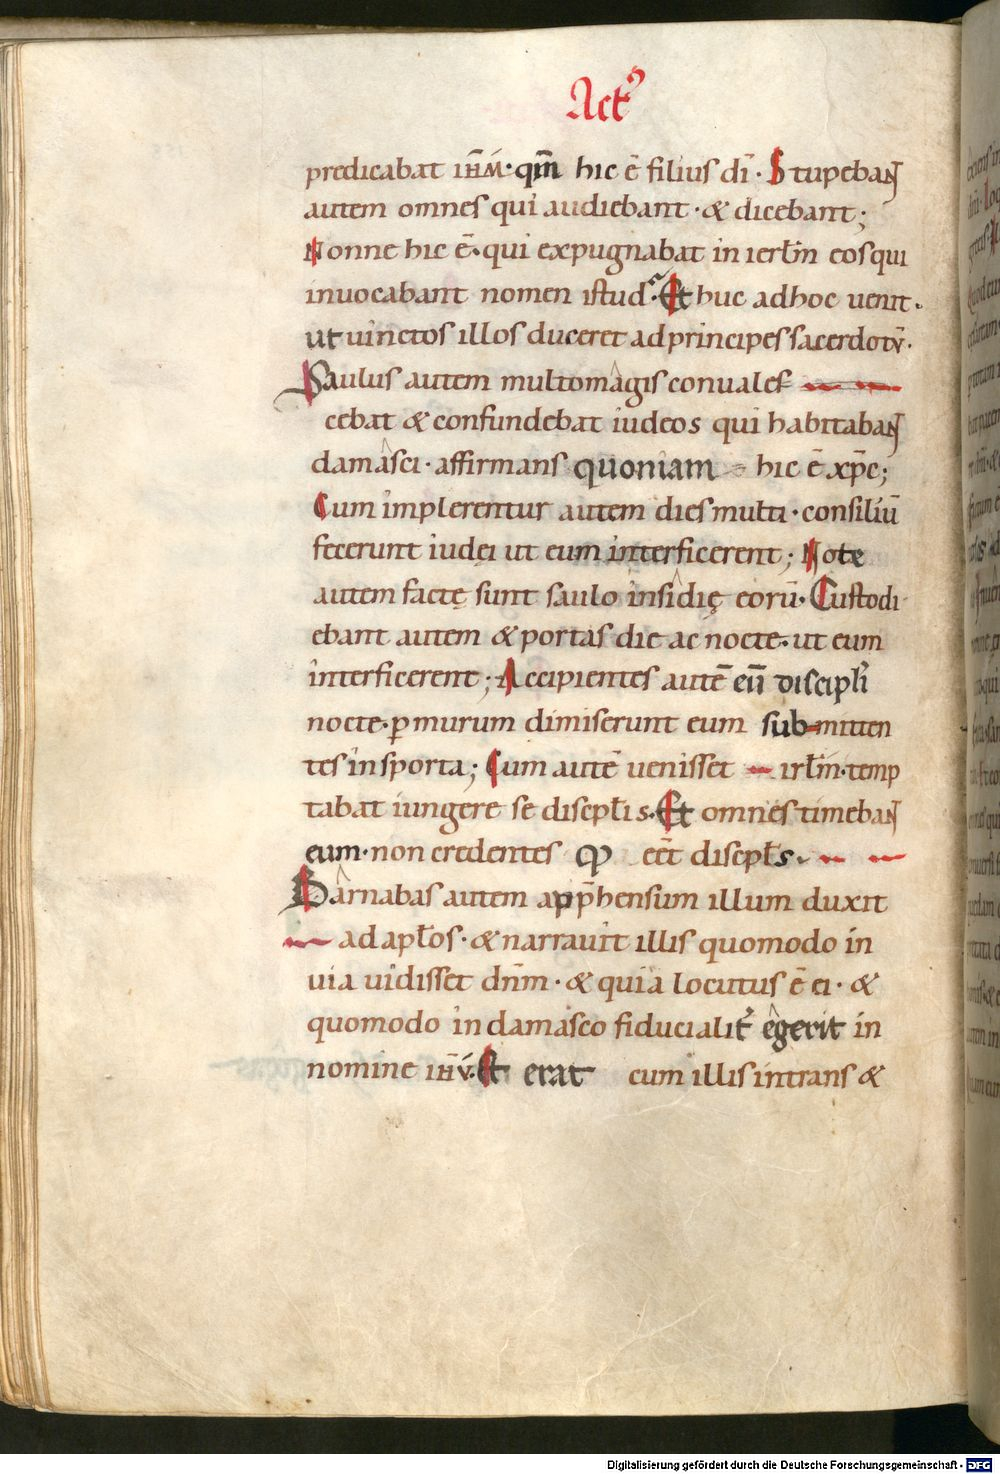 Act᾿
predicabat ihm̄· qm̄ hic ē filius di̅· Stupeban̅t
autem omnes qui audiebant· & dicebant;
Nonne hic ē· qui expugnabat in ierl̅m eos qui
inuocabant nomen istud· Et huc ad hoc uenit·
ut uinctos illos duceret ad principes sacerdotū·
Saulus autem multo magis conuales
cebat & confundebat iudeos qui habitabant
damasci· affirmans quoniam hic ē xp̅c;
Cum implerentur autem dies multi· consiliū
fecerunt iudęi ut eum interficerent; Note
autem factę sunt saulo insidię eorū· Custodi
ebant autem & portas die ac nocte· ut eum
interficerent; Accipientes autē eū discipl̅i
nocte· ꝑ murum dimiserunt eum submitten
tes in sporta; Cum autē uenisset irl̅m· temp
tabat iungere se discipl̅is· Et omnes timebant
eum· non credentes ꝙ eēt discipl̅s·
Barnabas autem app̅hensum illum duxit
ad apl̅os· & narrauit illis quomodo in
uia uidisset dn̅m· & quia locutus ē ei· &
quomodo in damasco fiducialit᾿ egerit in
nomine ih̅v· Et erat cum illis intrans &
Digitalisierung gefördert durch die Deutsche Forschungsgemeinschaft - DFG